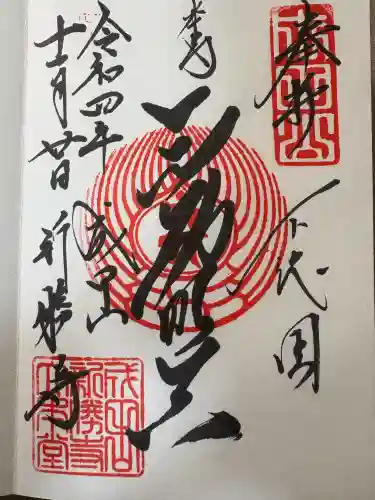 奉拝
下総国
本尊
不動明王
令和四年
十二月廿日
成田山
新勝寺
成田山
新勝寺
大本堂